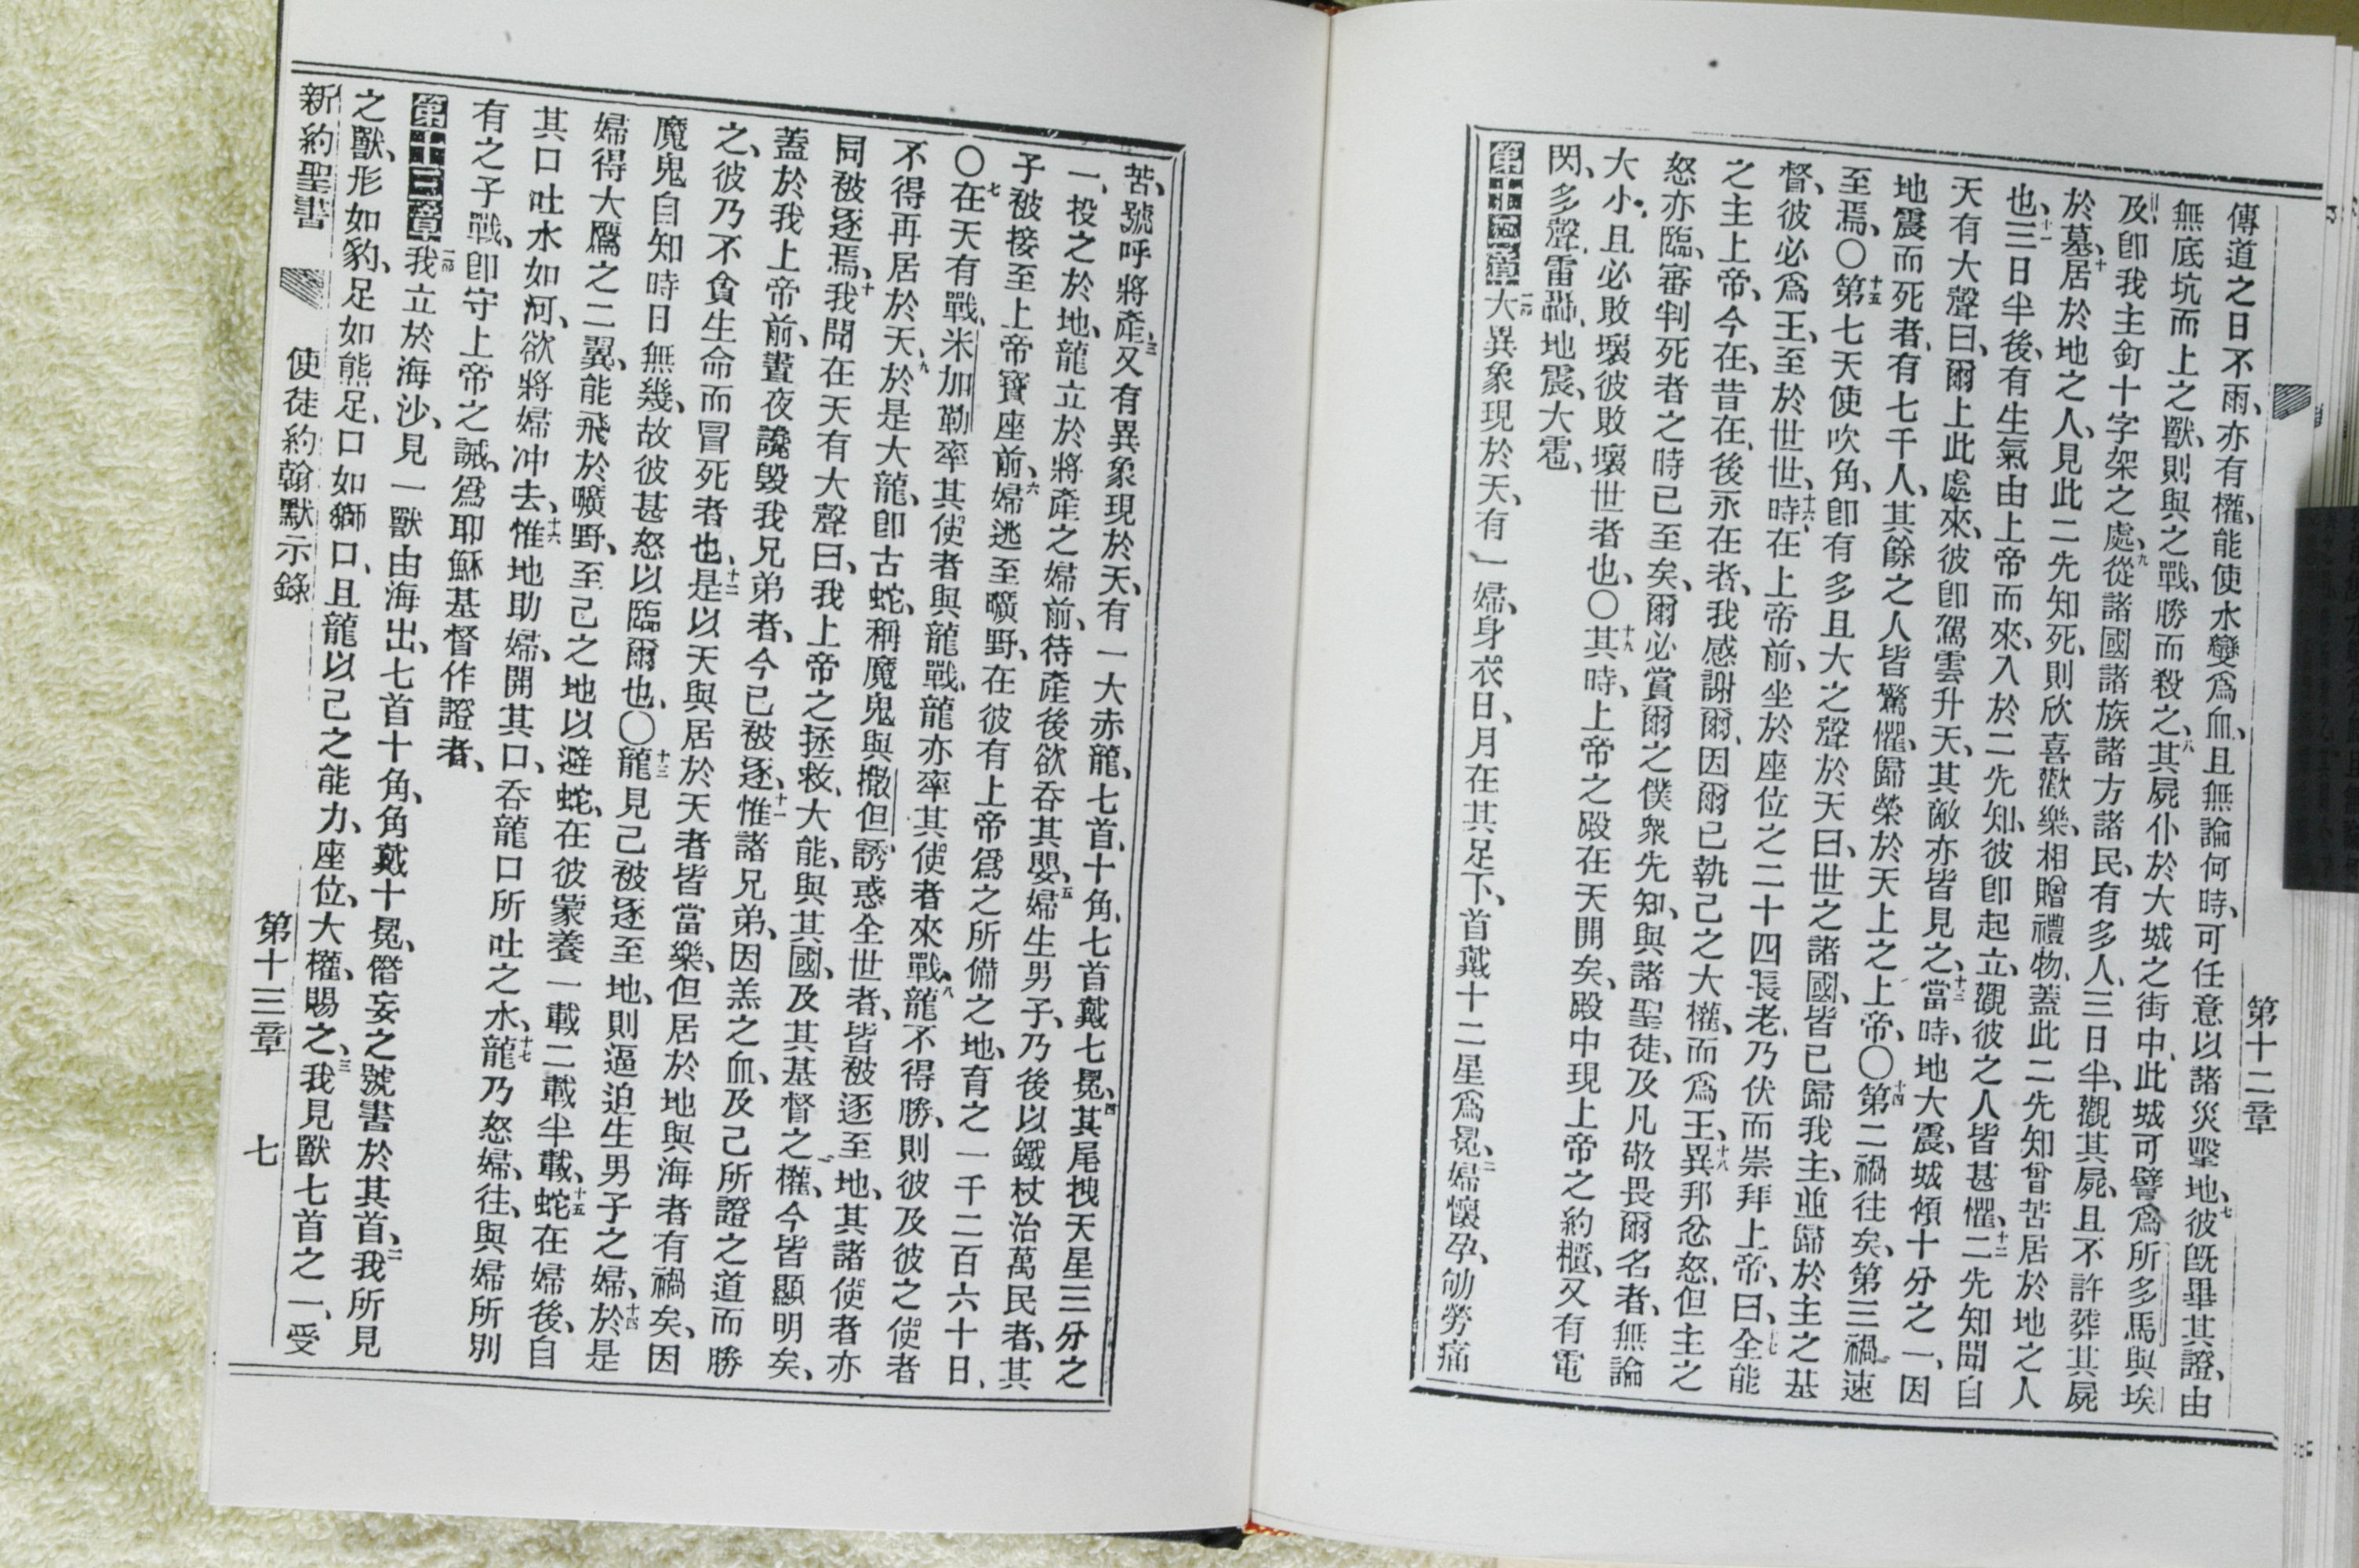 第十二章
傳道之日不雨、亦有權、能使水變爲血、且無論何時、可任意以諸災擊地、七彼既畢其證、由
無底坑而上之獸、則與之戰、勝而殺之、八其屍仆於大城之街中、此城可譬爲所多馬與埃
及、卽我主釘十字架之處、九從諸國諸族諸方諸民、有多人、三日半、觀其屍、且不許葬其屍
於墓、十居於地之人、見此二先知死、則欣喜歡樂、相贈禮物、蓋此二先知曾苦居於地之人
也、十一三日半後、有生氣由上帝而來、入於二先知、彼卽起立、觀彼之人皆甚懼、十二二先知聞自
天有大聲曰、爾上此處來、彼卽駕雲升天、其敵亦皆見之、十三當時、地大震、城傾十分之一、因
地震而死者、有七千人、其餘之人皆驚懼、歸榮於天上之上帝、〇十四第二禍往矣、第三禍速
至焉、〇十五第七天使吹角、卽有多且大之聲於天曰、世之諸國、皆已歸我主、並歸於主之基
督、彼必爲王、至於世世、十六時在上帝前、坐於座位之二十四長老、乃伏而崇拜上帝、曰、十七全能
之主上帝、今在、昔在、後永在者、我感謝爾、因爾已執己之大權、而爲王、十八異邦忿怒、但主之
怒亦臨、審判死者之時已至矣、爾必賞爾之僕衆先知、與諸聖徒、及凡敬畏爾名者、無論
大小、且必敗壞彼敗壞世者也、〇十九其時、上帝之殿在天開矣、殿中現上帝之約櫃、又有電
閃、多聲、雷轟、地震、大雹、
第十二章一節大異象現於天、有一婦、身衣日、月在其足下、首戴十二星爲冕、二婦懷孕、劬勞痛
苦、號呼將產、三又有異象現於天、有一大赤龍、七首、十角、七首戴七冕、四其尾拽天星三分之
一、投之於地、龍立於將產之婦前、待產後欲吞其嬰、五婦生男子、乃後以鐵杖治萬民者、其
子被接至上帝寶座前、六婦逃至曠野、在彼有上帝爲之所備之地、育之一千二百六十日、
〇七在天有戰、米加勒率其使者與龍戰、龍亦率其使者來戰、八龍不得勝、則彼及彼之使者
不得再居於天、九於是大龍、卽古蛇、稱魔鬼與撒但、誘惑全世者、皆被逐至地、其諸使者亦
同被逐焉、十我聞在天有大聲曰、我上帝之拯救、大能、與其國、及其基督之權、今皆顯明矣、
蓋於我上帝前、晝夜讒毀我兄弟者、今已被逐、十一惟諸兄弟、因羔之血、及己所證之道而勝
之、彼乃不貪生命而冒死者也、十二是以天與居於天者皆當樂、但居於地與海者有禍矣、因
魔鬼自知時日無幾、故彼甚怒以臨爾也、〇十三龍見己被逐至地、則逼迫生男子之婦、十四於是
婦得大鷹之二翼、能飛於曠野、至己之地以避蛇、在彼蒙養一載二載半載、十五蛇在婦後、自
其口吐水如河、欲將婦冲去、十六惟地助婦、開其口、吞龍口所吐之水、十七龍乃怒婦、往與婦所別
有之子戰、卽守上帝之誡、爲耶穌基督作證者、
第十三章一節我立於海沙、見一獸由海出、七首十角、角戴十冕、僭妄之號書於其首、二我所見
之獸、形如豹、足如熊足、口如獅口、且龍以己之能力、座位、大權、賜之、三我見獸七首之一、受
新約聖書 使徒約翰默示錄 第十三章 七